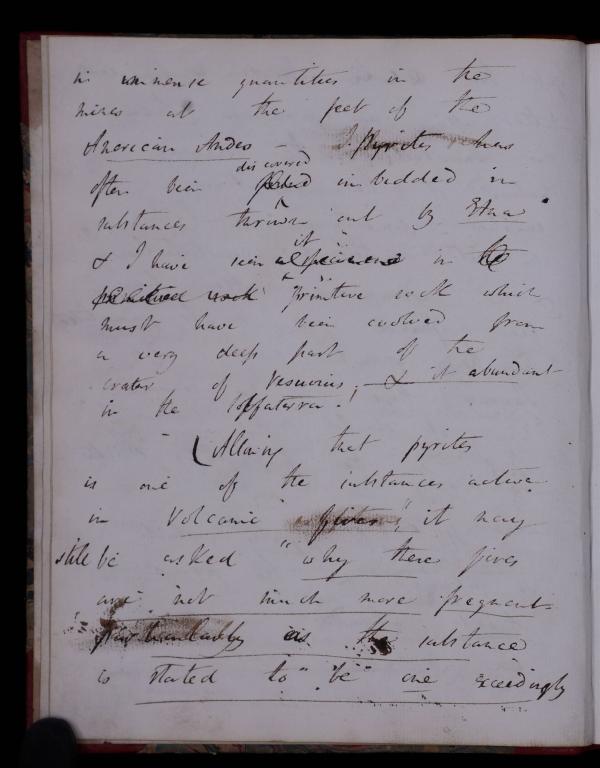 in immense quantities in the
mines at the feet of the
American Andes – Pyrites has
often been discovered imbedded in
substances thrown out by Etna
& I have seen it in
primitive rock which
must have been evolved from
a very deep part of the
crater of Vesuvius; & it abundant
in the Solfaterra.
(Allowing that pyrites
is one of the substances active
in Volcanic fires, it may
still be asked "why these fires
are not much more frequent
particularly as the substance
is stated to "be" one exceedingly